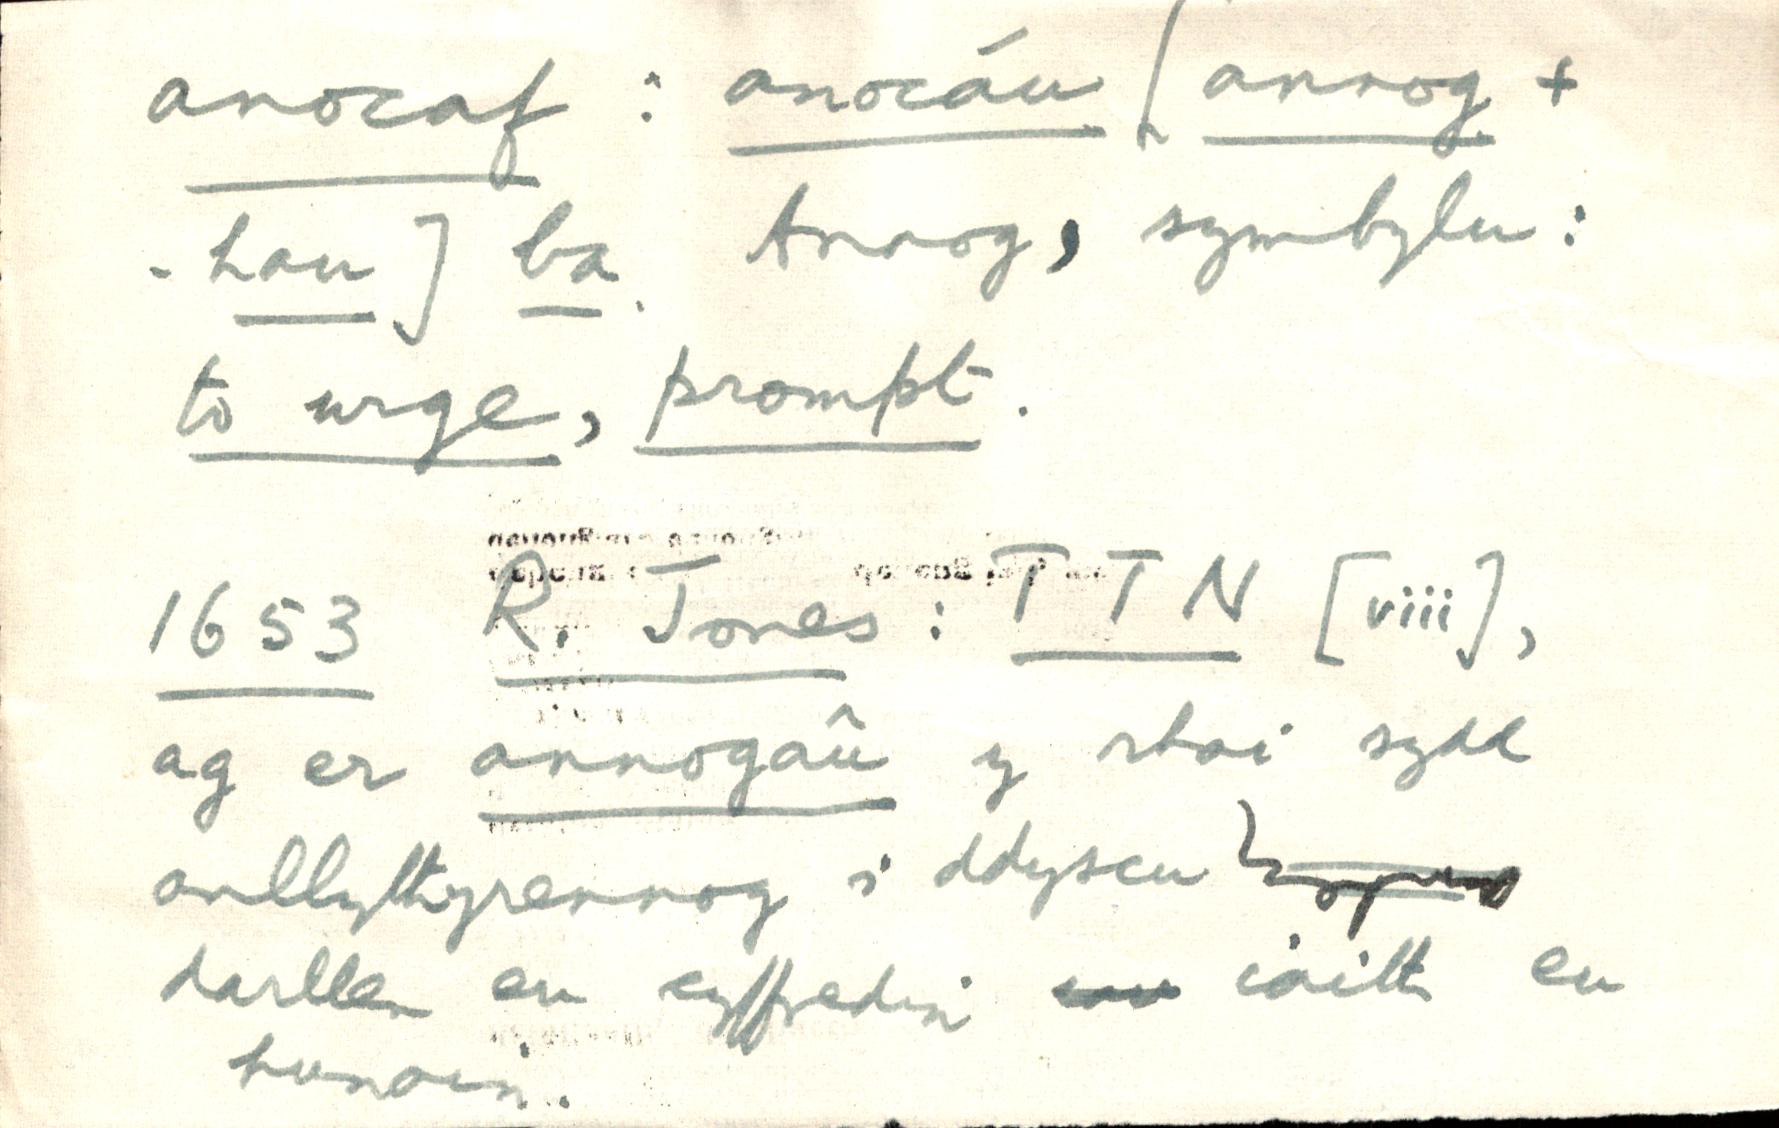 anocaf : anocáu [annog +
-hau] ba. Annog, symbylu :
to urge, prompt.
1653 R. Jones : TTN [viii],
ag er annogaû y rhai sydd
anllythyrennog i ddyscu
darllen eu cyffredin iaith eu
hunain.